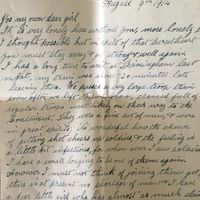 August 9th 1914
For my own dear girl
It is very lonely here without you, more lonely than
I thought possible but in spite of that sweetheart
you must stay away 
I had a long time to wait at Birmingham last
night, my train was some 30 minutes late
leaving there. We passed a very large troop train
soon after
regular troops most likely on their way to the
Continent. They were a fine set of men, & were
in great spirits. Its wonderful how the chance
of getting shot cheers up soldiers & the feeling is
a little bit infectious, for when ever I see soldiers
I have a small longing to be one of them again.
However I must not think of joining them yet,
there is at present no shortage of men & I have
dear little girl who has almost as much claim